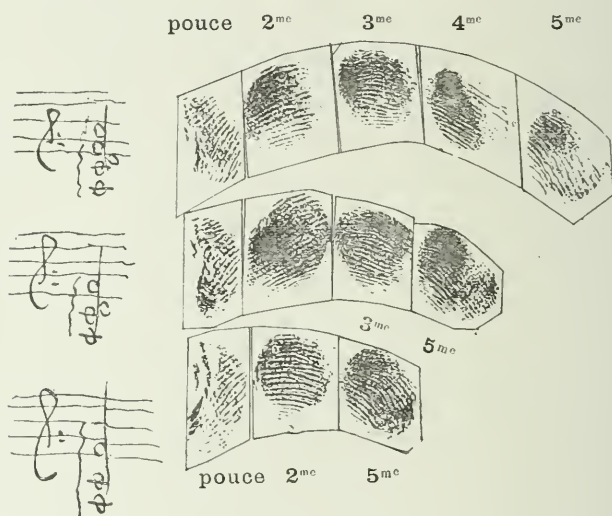 pouce 2me 3me 4me 5me
3me 5me
pouce 2me 5me